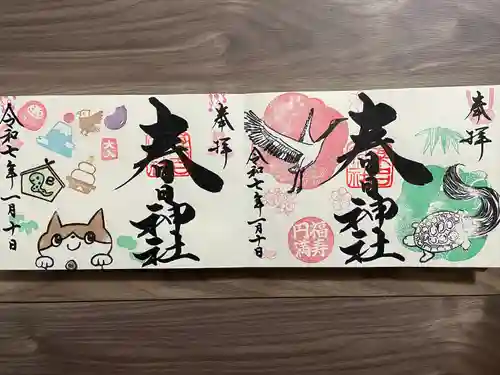 奉拝
春日神社
令和七年一月十日
福寿
円満
奉拝
春日神社
大吉
令和七年一月十日